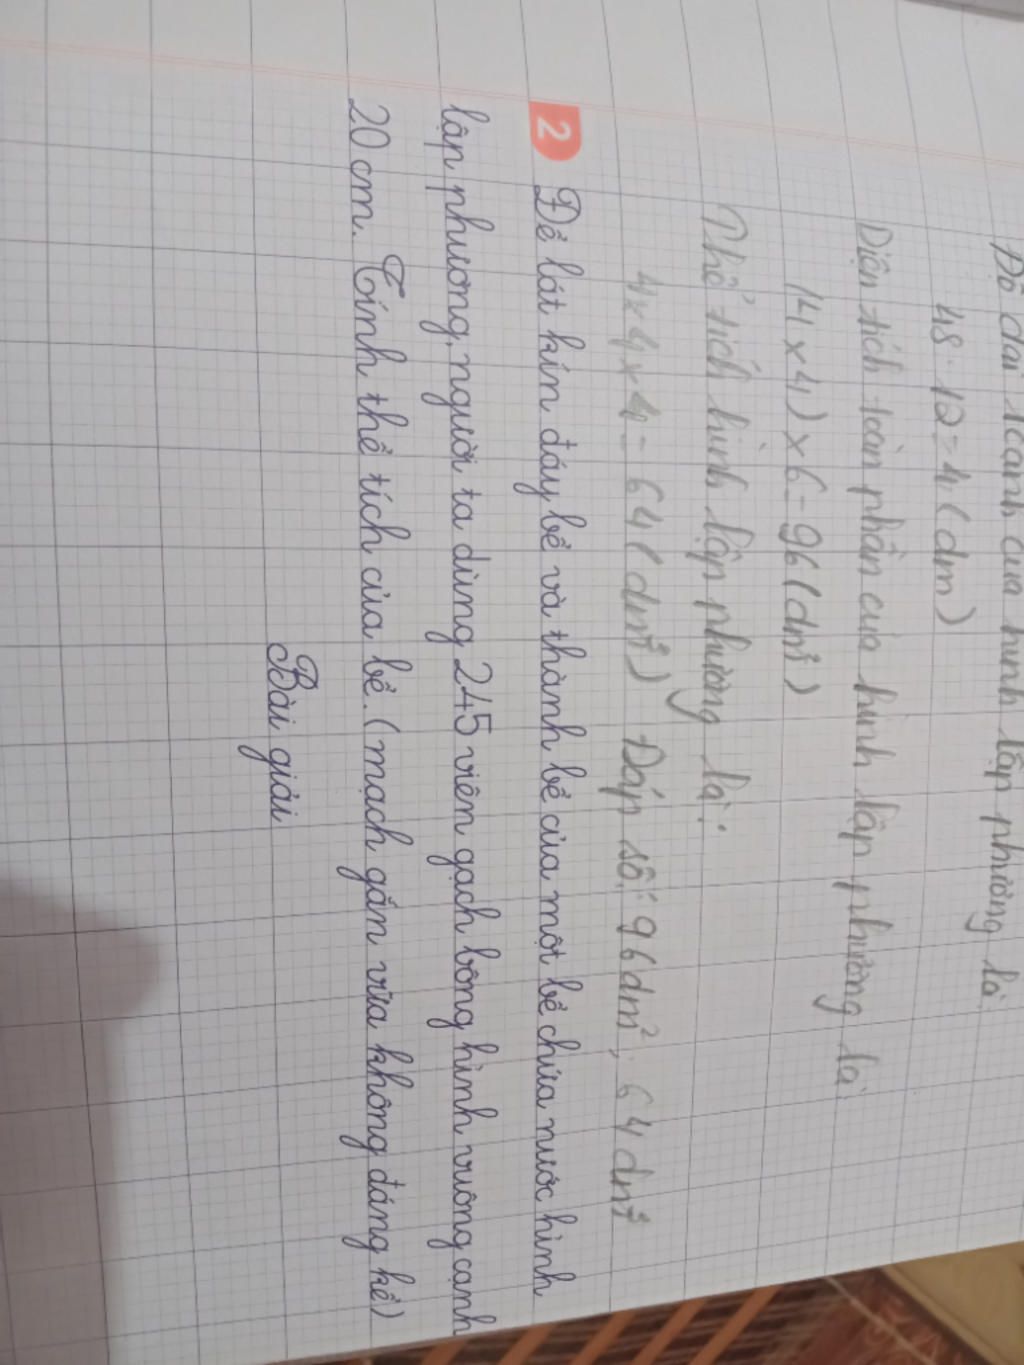 Độ dài 1 cạnh của hình lập phương là
48 : 12 = 4 (dm)
Diện tích toàn phần của hình lập phương là
(4 x 4) x 6 = 96 (dm²)
Thể tích hình lập phương là:
4 x 4 x 4 = 64 (dm³) Đáp số: 96dm²; 64dm³
2 Để lát kín đáy bể và thành bể của một bể chứa nước hình
lập phương, người ta dùng 245 viên gạch bông hình vuông cạnh
20 cm. Tính thể tích của bể. (mạch gắn vữa không đáng kể)
Bài giải